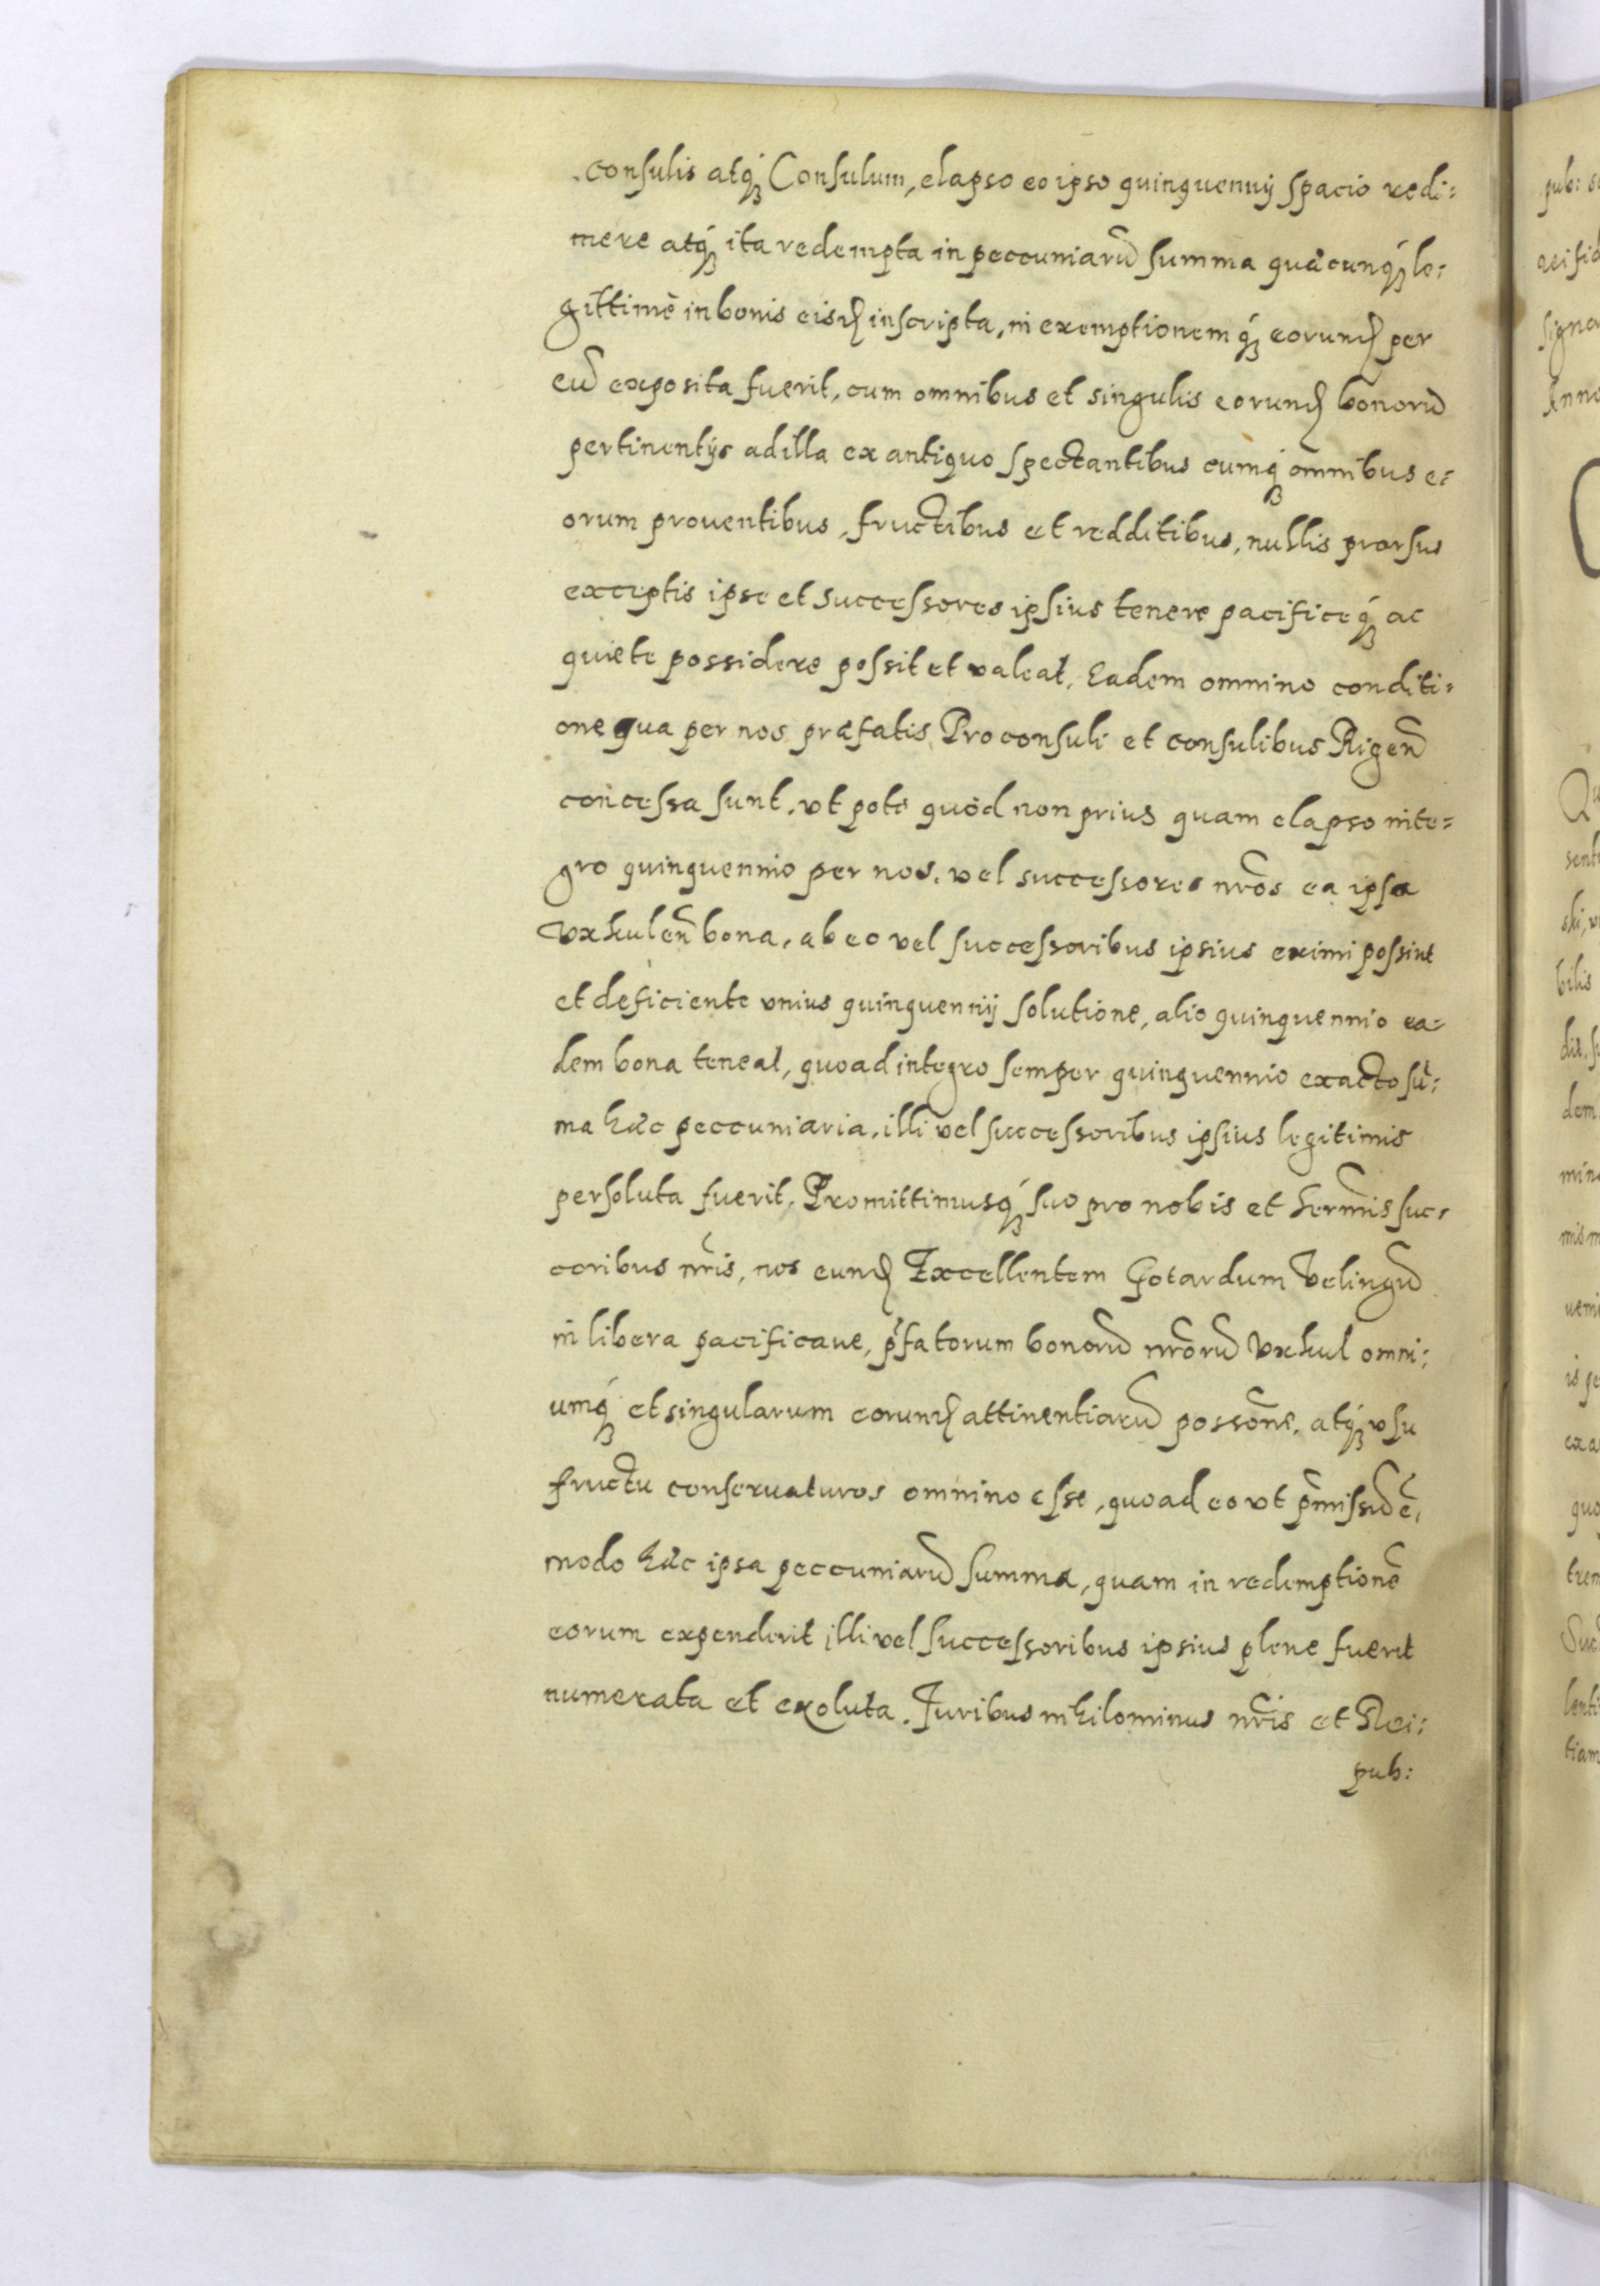 consulis atq́ꝫ Consulum, elapso eo ipso quinquennij spacio redi:
mere atq́ꝫ ita redempta in peccuniarū summa quacunq́ꝫ le:
gittimè in bonis eisđ inscripta, in exemptionem q́ꝫ eorunđ per
eū exposita fuerit, cum omnibus et singulis eorunđ bonorū
pertinentijs ad illa ex antiquo spectantibus cumq́ꝫ omnibus e:
orum prouentibus, fructibus et redditibus, nullis prorsus
exceptis ipse et successores ipsius tenere pacificeq́ꝫ ac
quiete possidere possit et valeat. Eadem omnino conditi:
one qua per nos præfatis Proconsuli et consulibus Rigen̄
concessa sunt, vt pote quòd non prius quam elapso inte:
gro quinquennio per nos, vel successores nr̄os ea ipsa
Vxkulen̄ bona, ab eo vel successoribus ipsius eximi possint
et deficiente vnius quinquennij solutione, alio quinquennio ea:
dem bona teneat, quoad integro semper quinquennio exacto sū:
ma hæc peccuniaria, illi vel successoribus ipsius legitimis
persoluta fuerit. Promittimusq́ꝫ suo pro nobis et Serm̄is suc:
coribus nr̄is, nos eunđ Excellentem Gotardum Velingū
in libera pacificaue, p̄fatorum bonorū nr̄orū Vxkul omni:
umq́ꝫ et singularum eorunđ attinentiarū posson̄e, atq́ꝫ vsu
fructu conseruaturos omnino esse, quoad eo vt p̄missū ē,
modo hæc ipsa peccuniarū summa, quam in redemptionē
eorum expenderit illi vel successoribus ipsius plene fuerit
numerata et exoluta. Juribus nihilominus nr̄is et Rei:
pub: